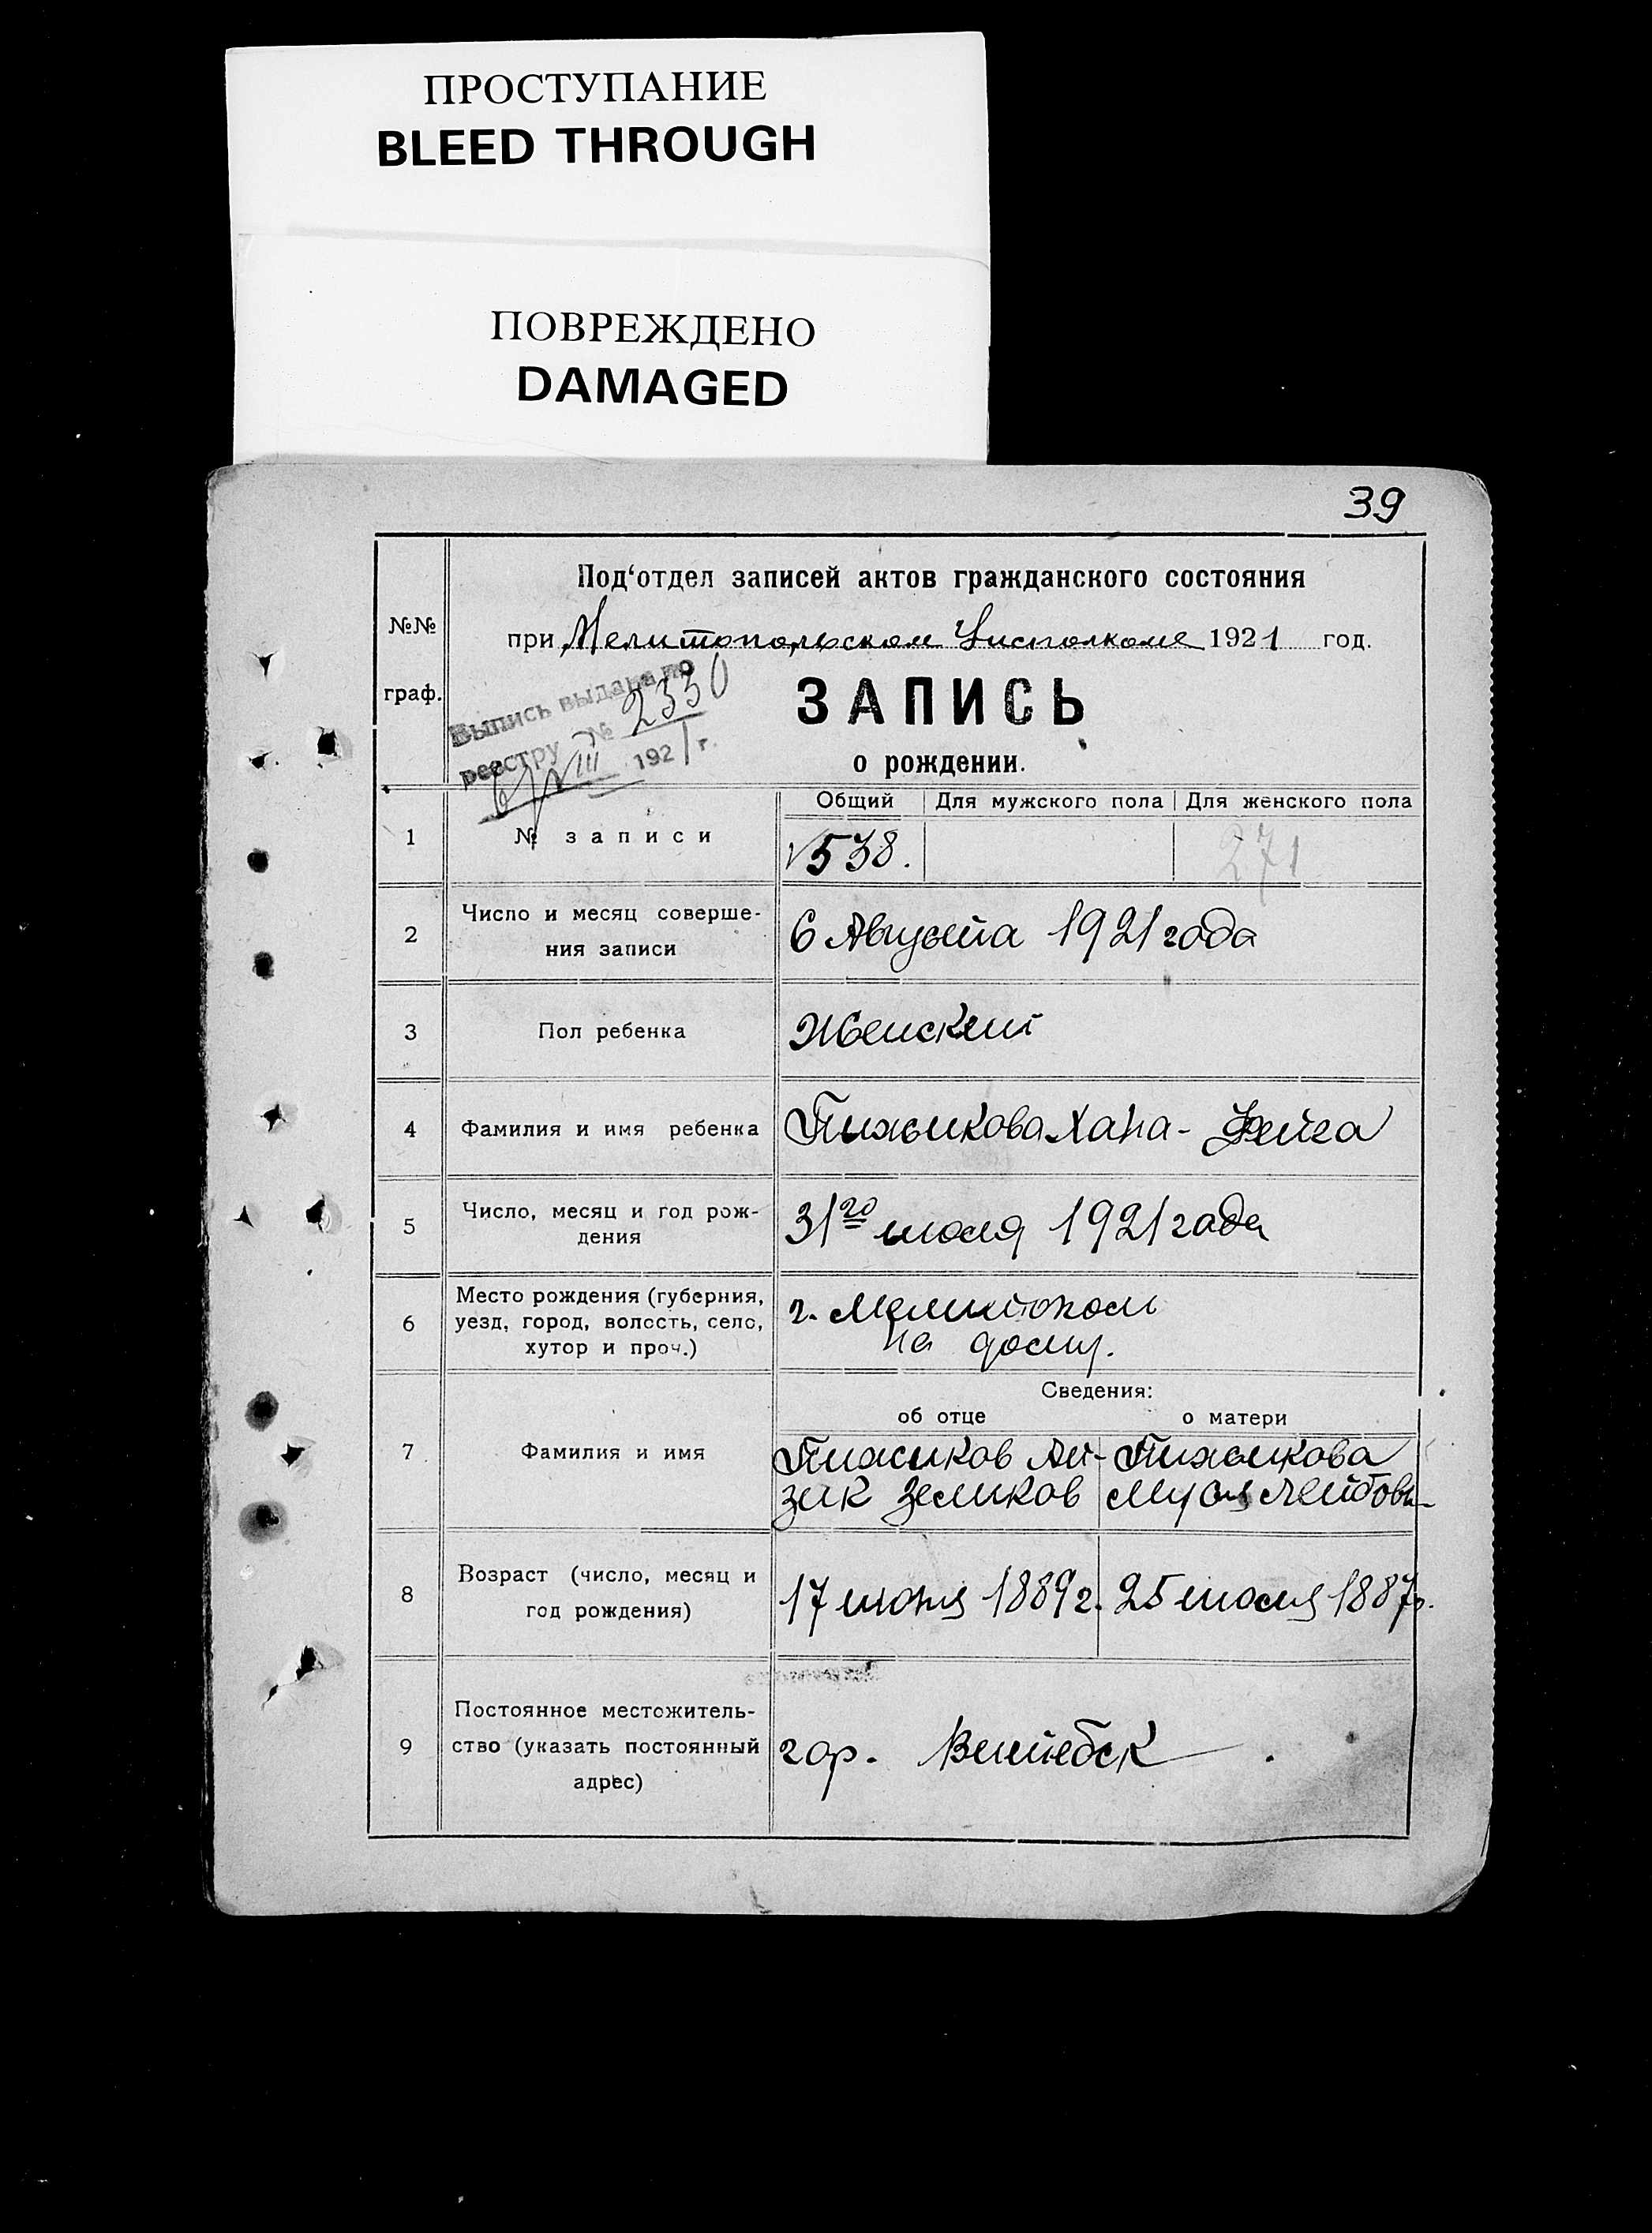 ПРОСТУПАНИЕ
BLEED THROUGH
ПОВРЕЖДЕНО
DAMAGED
39
№№
граф.
Под‘отдел записей актов гражданского состояния
при Мелитопольском Исполкоме 1921 год.
Выпись выдана по
реестру № 2330
6/VIII 1921 г.
ЗАПИСЬ
о рождении.
Общий Для мужского пола Для женского пола
1 № записи 538. 271
2 Число и месяц соверше-
ния записи
6 Августа 1921 года
3 Пол ребенка Женский
4 Фамилия и имя ребенка Пижикова Хана-Фейга
5 Число, месяц и год рож-
дения
31го июля 1921 года
6 Место рождения (губерния,
уезд, город, волость, село,
хутор и проч.)
г. Мелитополь
на дому.
Сведения:
об отце о матери
7 Фамилия и имя
Пижиков Ай-
зик Зеликов
Пижикова
Муся Лейбов
8 Возраст (число, месяц и
год рождения)
17 июня 1889 г. 25 июля 1887 г.
9 Постоянное местожитель-
ство (указать постоянный
адрес)
гор. Витебск.